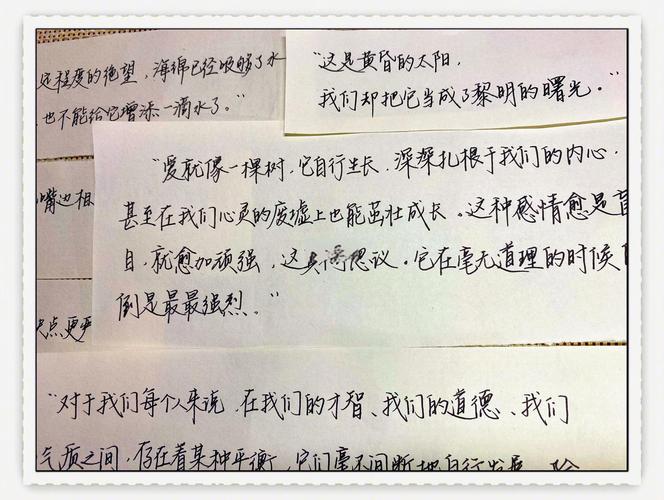 程度的绝望，海绵已经吸够了水
也不能给它增添一滴水了。”
“这是黄昏的太阳，
我们却把它当成了黎明的曙光。”
“爱就像一棵树，它自行生长，深深扎根于我们的内心，
甚至在我们心灵的废墟上也能茁壮成长。这种感情愈是盲
目，就愈加顽强，这真不可思议。它在毫无道理的时候
倒是最最强烈。”
嘴边相
点更
“对于我们每个人来说，在我们的才智、我们的道德、我们
气质之间，存在着某种平衡，它们毫不间断地自行发展，